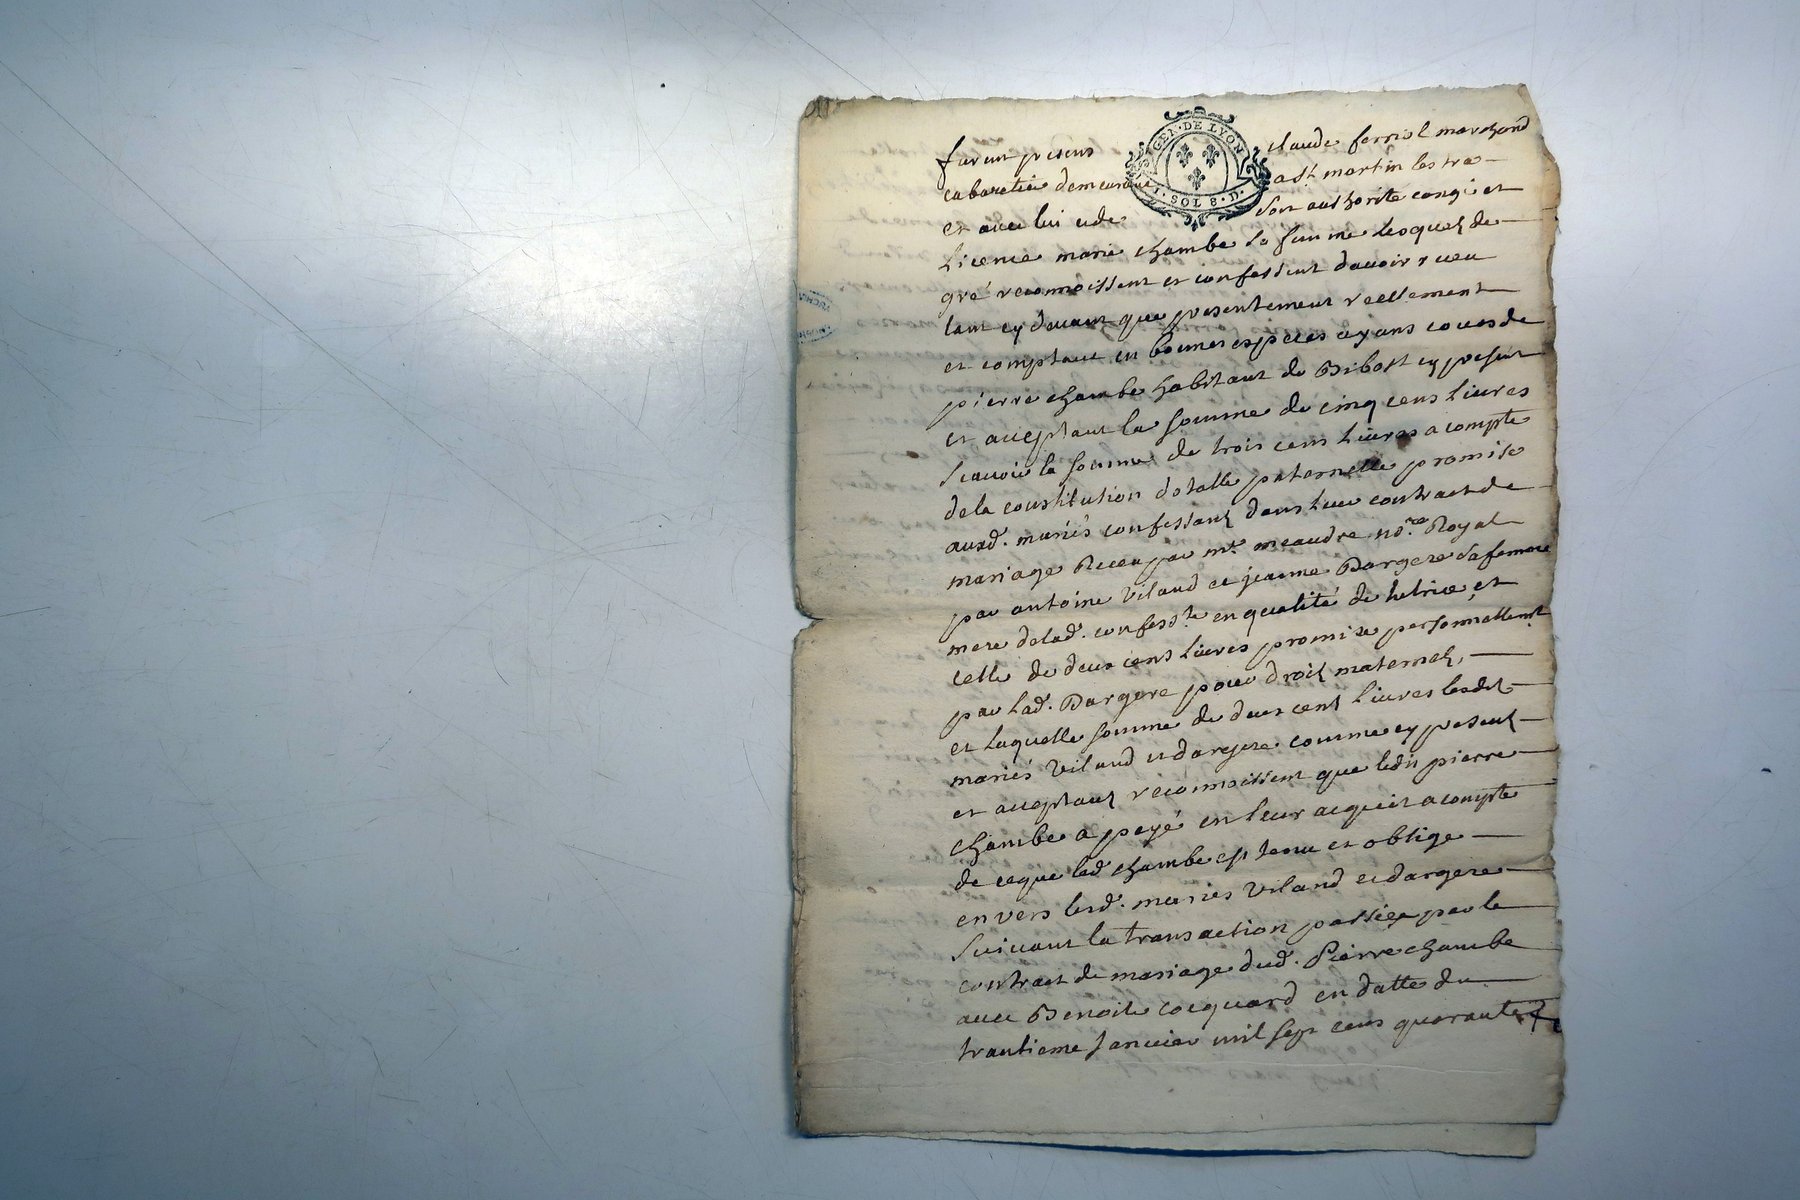 furent presens claude ferriol marchand
GEN. DE LYON
1. SOL 8. D.
cabaretier demeurant a st martin les tra
et avec lui et de son authorité congé et
licence marie chambe sa femme lesquels de
gré reconnoissent et confessent davoir receu
tant cy devant que presentement reellement
et comptant en bonnes especes ayans cours de
pierre chambe habitant de Bibost cy present
et acceptant la somme de cinq cens livres
scavoir la somme de trois cens livres a compte
de la constitution dotalle paternelle promise
auxd. mariés confessants dans leur contract de
mariage Receu par me. meaudre nore. Royal
par antoine Vilaud et jeanne Dargere sa femme
mere de lad. confesste en qualité de hetrice, et
celle de deux cens livres promise personnellemnt
par lad. Dargere pour droits maternels,
et laquelle somme de deux cent livres lesdts
mariés Vilaud et dargere comme cy presents
et acceptants reconnoissent que ledit pierre
chambe a payé en leur acquit a compte
de ce que led chambe est tenu et oblige
envers lesd. maries Vilaud et dargere
suivant la transaction passée par le
contract de mariage dud. Pierre chambe
avec Benoite cocquard en datte du
trantieme janvier mil sept cens quarante